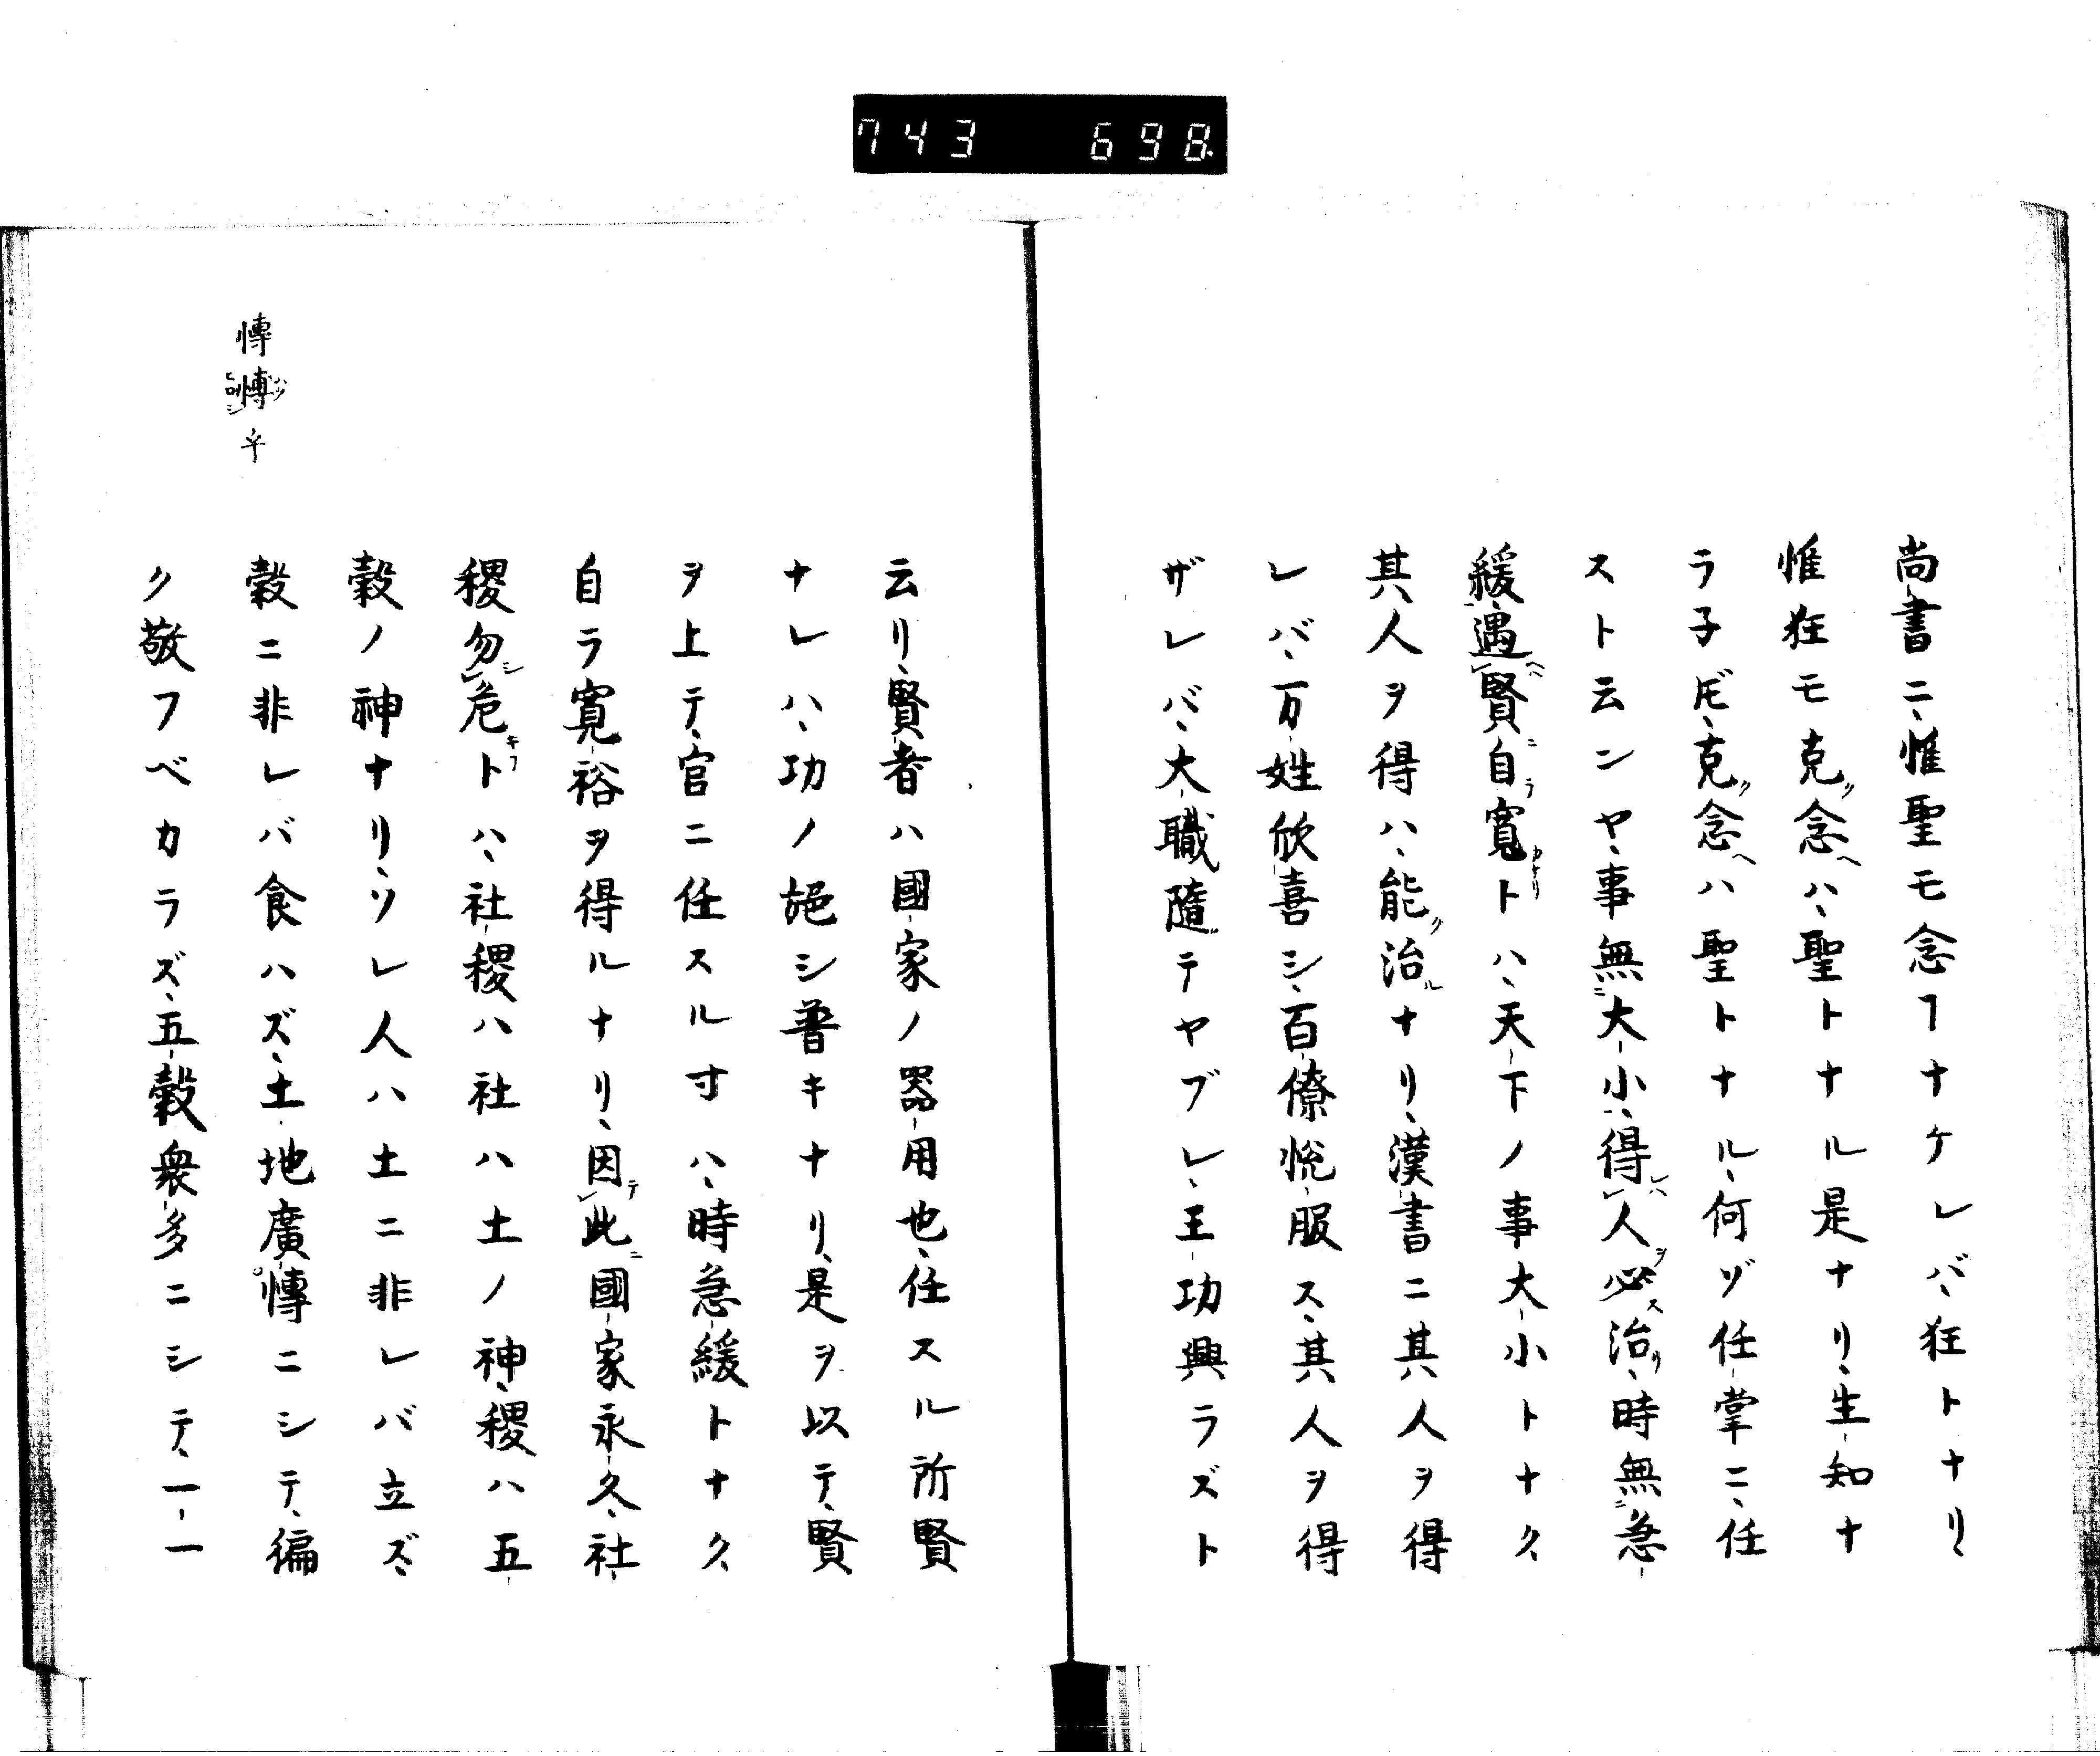 743 698
尚書ニ、惟聖モ念フナケレバ、狂トナリ、
惟狂モ克ク念ヘハ、聖トナル是ナリ、生知ナ
ラ子ドモ、克ク念ヘハ聖トナル、何ゾ任掌ニ、任
スト云ンヤ、事無ニ大小、得レハ人ヲ必ス治リ、時無ニ急
緩、遇ヘハ賢ニ自ラ寛カナリトハ、天下ノ事大小トナク、
其人ヲ得ハ、能ク治ルナリ、漢書ニ其人ヲ得
レバ、万姓欣喜シ、百僚悦服ス、其人ヲ得
ザレバ、大職隨テヤブレ、王功興ラズト
云リ、賢者ハ國家ノ器用也、任スル所賢
ナレハ、功ノ施シ普キナリ、是ヲ以テ、賢
ヲ上テ、官ニ任スル寸ハ、時急緩トナク、
自ラ寛裕ヲ得ルナリ、因テ此ニ國家永久、社
稷勿シ危キフトハ、社稷ハ社ハ土ノ神、稷ハ五
穀ノ神ナリ、ソレ人ハ土ニ非レバ立ズ、
穀ニ非レバ食ハズ、土地廣慱ニシテ、徧
ク敬フベカラズ、五穀衆多ニシテ、一一
慱 慱ハク ヒロシ